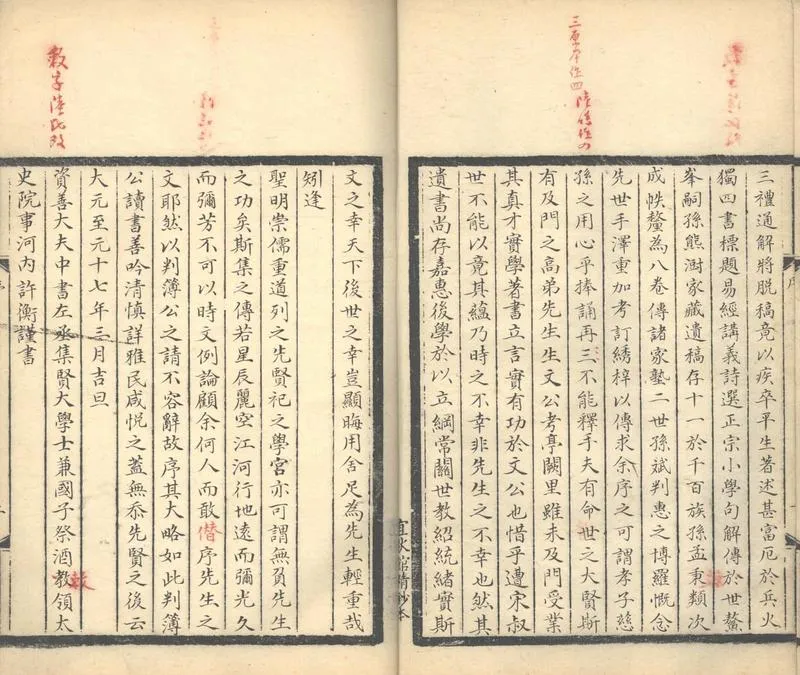 三禮通解將脫稿竟以疾卒平生著述甚富厄於兵火
獨四書標題易經講義詩選正宗小學句解傳於世鼇
峯嗣孫熊澍家藏遺稿存十一於千百族孫孟秉類次
成帙釐為八卷傳諸家塾二世孫斌判惠之博羅慨念
先世手澤重加考訂綉梓以傳求余序之可謂孝子慈
孫之用心乎捧誦再三不能釋手夫有命世之大賢斯
有及門之高弟先生生文公考亭闕里雖未及門受業
其真才實學著書立言實有功於文公也惜乎遭宋叔
世不能以竟其蘊乃時之不幸非先生之不幸也然其
遺書尚存嘉惠後學於以立綱常關世教紹統緒實斯
三
作四
宜秋館精鈔本
序
文之幸天下後世之幸豈顯晦用舍足為先生輕重哉
矧逢
聖明崇儒重道列之先賢祀之學宮亦可謂無負先生
之功矣斯集之傳若星辰麗空江河行地遠而彌光久
而彌芳不可以時文例論顧余何人而敢僣序先生之
文耶然以判簿公之請不容辭故序其大略如此判簿
公讀書善吟清慎詳雅民咸悅之蓋無忝先賢之後云
大元至元十七年三月吉旦
資善大夫中書左丞集賢大學士兼國子祭酒教領太
史院事河內許衡謹書